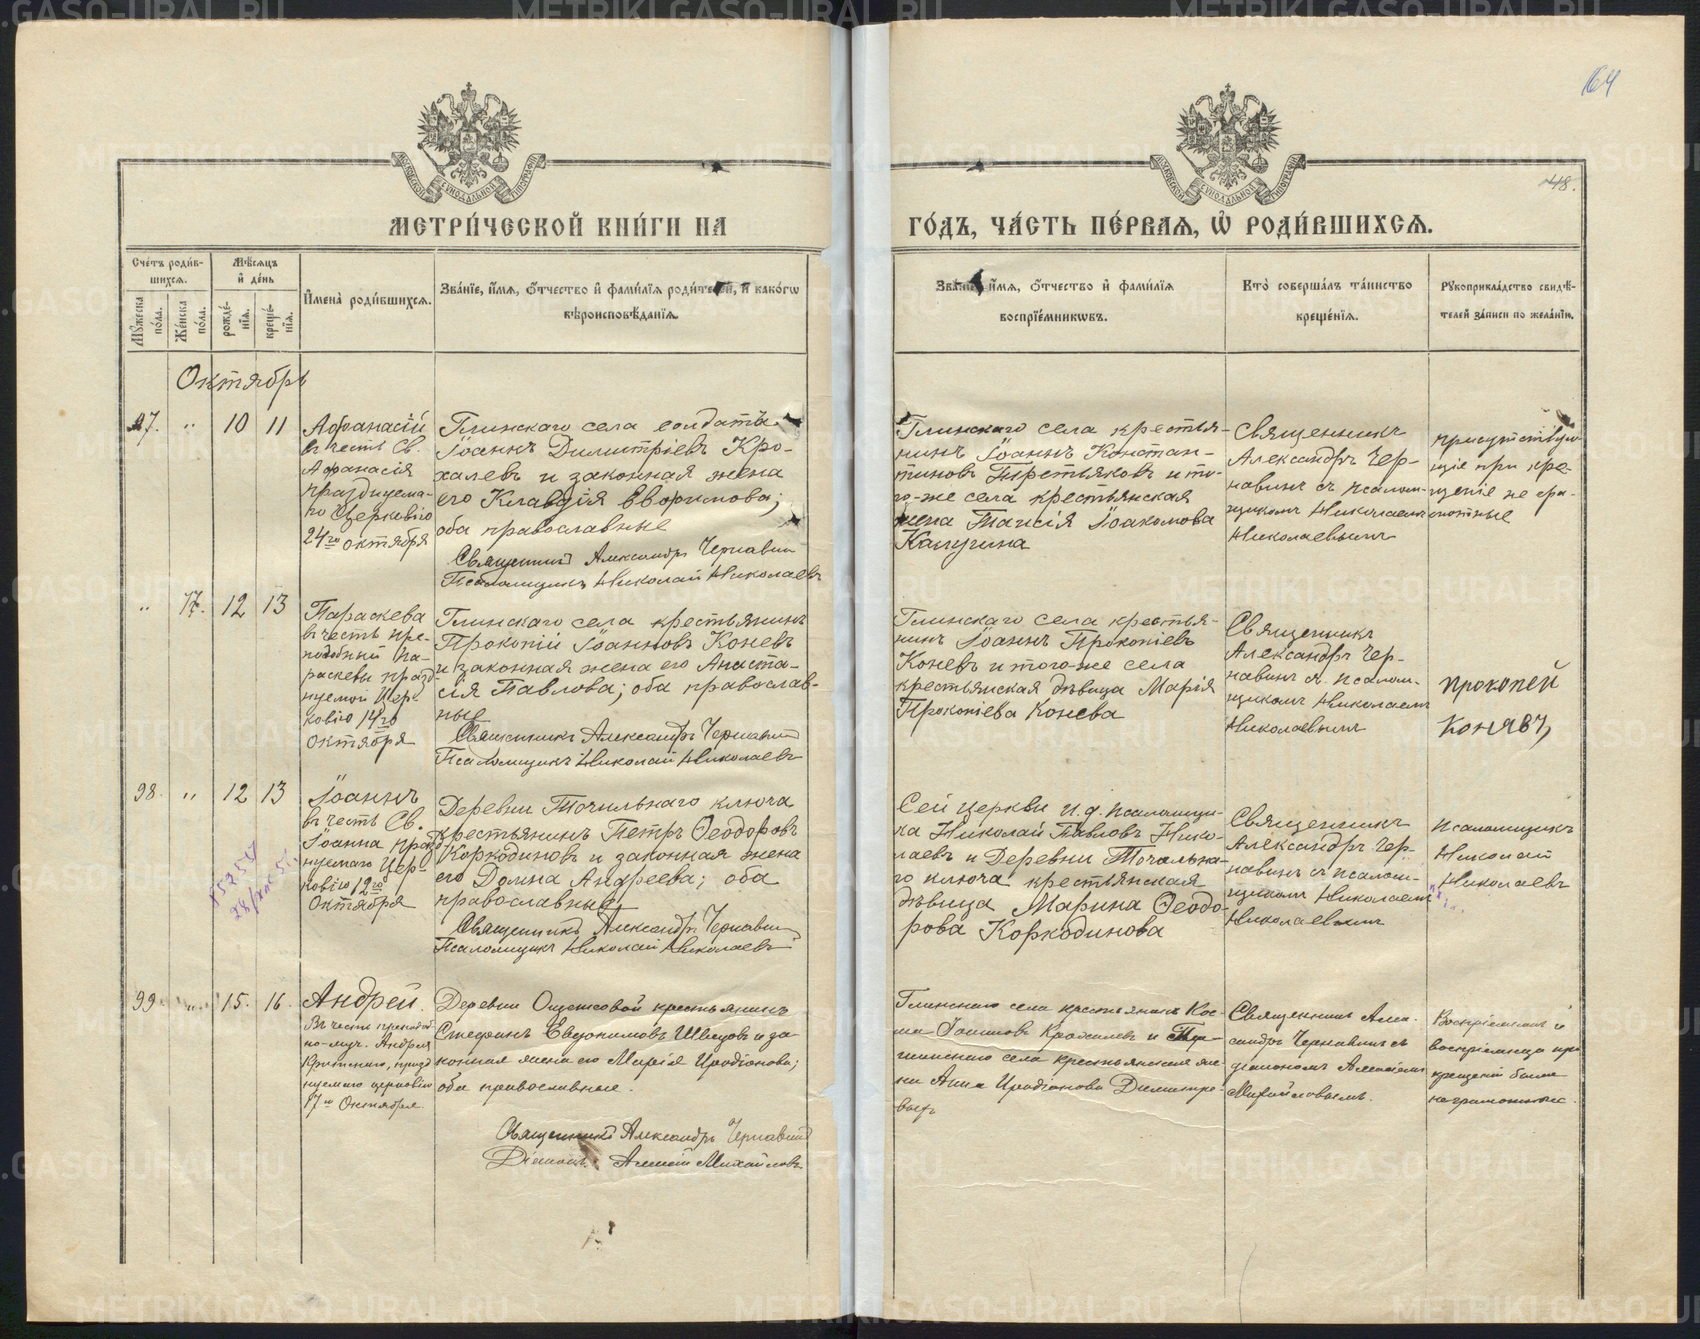 64
48.
МЕТРИ́ЧЕСКОЙ КНИ́ГИ НА
ГО́ДЪ, ЧА́СТЬ ПЕ́РВАЯ, Ѡ РОДИ́ВШИХСЯ.
Сче́тъ роди́в-
шихся.
Мꙋ́жеска по́ла.
Же́нска по́ла.
Мѣ́сяцъ
и де́нь
рожде́-
нїя.
креще́-
нїя.
И́мена роди́вшихся.
Зва́нїе, и́мя, о́тчество и фами́лїя роди́телей, и како́гѡ
вѣроисповѣ́данїя.
Зва́нїе, и́мя, о́тчество и фами́лїя
воспрїе́мникѡвъ.
Кто̀ соверша́лъ та́инство
креще́нїя.
Рꙋкоприкла́дство свидѣ́-
телей за́писи по жела́нїю.
Октябрь
97. " 10 11
Афанасій
въ честь Св.
Афанасія
празднуема-
го Церковію
24го октября
Глинскаго села солдатъ
Іоаннъ Димитріевъ Кро-
халевъ и законная жена
его Клавдія Евфимова;
оба православные
Священникъ Александръ Чернавин
Псаломщикъ Николай Николаевъ
Глинскаго села крестья-
нинъ Іоаннъ Констан-
тиновъ Третьяковъ и то-
го-же села крестьянская
жена Таисія Іоакимова
Калугина
Священникъ
Александръ Чер-
навинъ съ псалом-
щикомъ Николаемъ
Николаевымъ
присутствую-
щіе при кре-
щеніе не гра-
мотные
" 17. 12 13
Параскева
въ честь пре-
подобный Па-
раскевы празд-
нуемой Цер-
ковію 14го
октября
Глинскаго села крестьянинъ
Прокопій Іоанновъ Коневъ
и законная жена его Анаста-
сія Павлова; оба православ-
ные
Священникъ Александръ Чернавин
Псаломщикъ Николай Николаевъ
Глинскаго села крестья-
нинъ Іоаннъ Прокопіевъ
Коневъ и того-же села
крестьянская дѣвица Марія
Прокопіева Конева
Священникъ
Александръ Чер-
навинъ съ псалом-
щикомъ Николаемъ
Николаевымъ
Прокопей
Конявъ
98. " 12 13
Іоаннъ
въ честь Св.
Іоанна празд-
нуемаго Цер-
ковію 12го
Октября
Деревни Точильнаго ключа
крестьянинъ Петръ Ѳеодоровъ
Коркодиновъ и законная жена
его Домна Андреева; оба
православные
Священникъ Александръ Чернавин
Псаломщикъ Николай Николаевъ
Сей церкви и. д. псаломщи-
ка Николай Павловъ Нико-
лаевъ и Деревни Точильна-
го ключа крестьянская
дѣвица Марина Ѳеодо-
рова Коркодинова
Священникъ
Александръ Чер-
навинъ съ псалом-
щикомъ Николаемъ
Николаевымъ
Псаломщикъ
Николай
Николаевъ
99. " 15. 16.
Андрей.
Въ честь преподоб-
но-муч. Андрея
Критскаго, празд-
нуемаго церковію
17го Октября.
Деревни Ощепковой крестьянинъ
Стефанъ Евдокимовъ Швецовъ и за-
конная жена его Марія Иродіонова;
оба православные.
Священникъ Александръ Чернавинъ
Діаконъ Алексій Михайловъ
Глинскаго села крестьянинъ Кос-
ма Іоанновъ Крохалевъ и
села крестьянская же-
на Анна Иродіонова Димитріе-
выхъ
Священникъ Алек-
сандръ Чернавинъ съ
діакономъ Алексіемъ
Михайловымъ.
Воспріемникъ и
воспріемница при
крещеніи были
неграмотные.